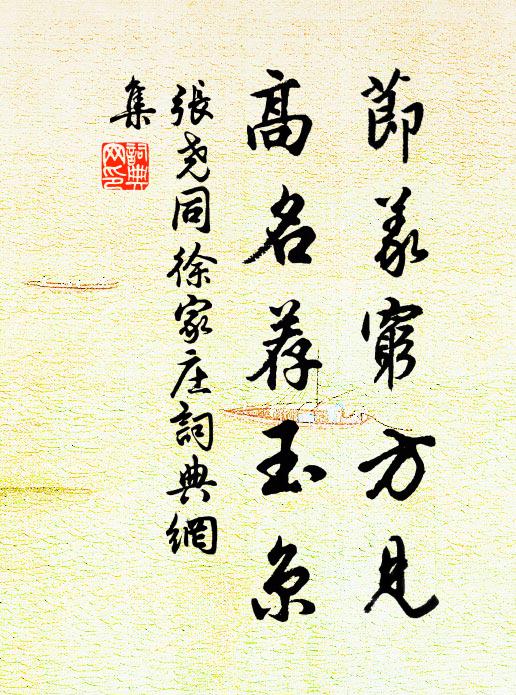 節義窮方見
高名荐玉京
張尧同徐家庄詞典網
集
詞典网印